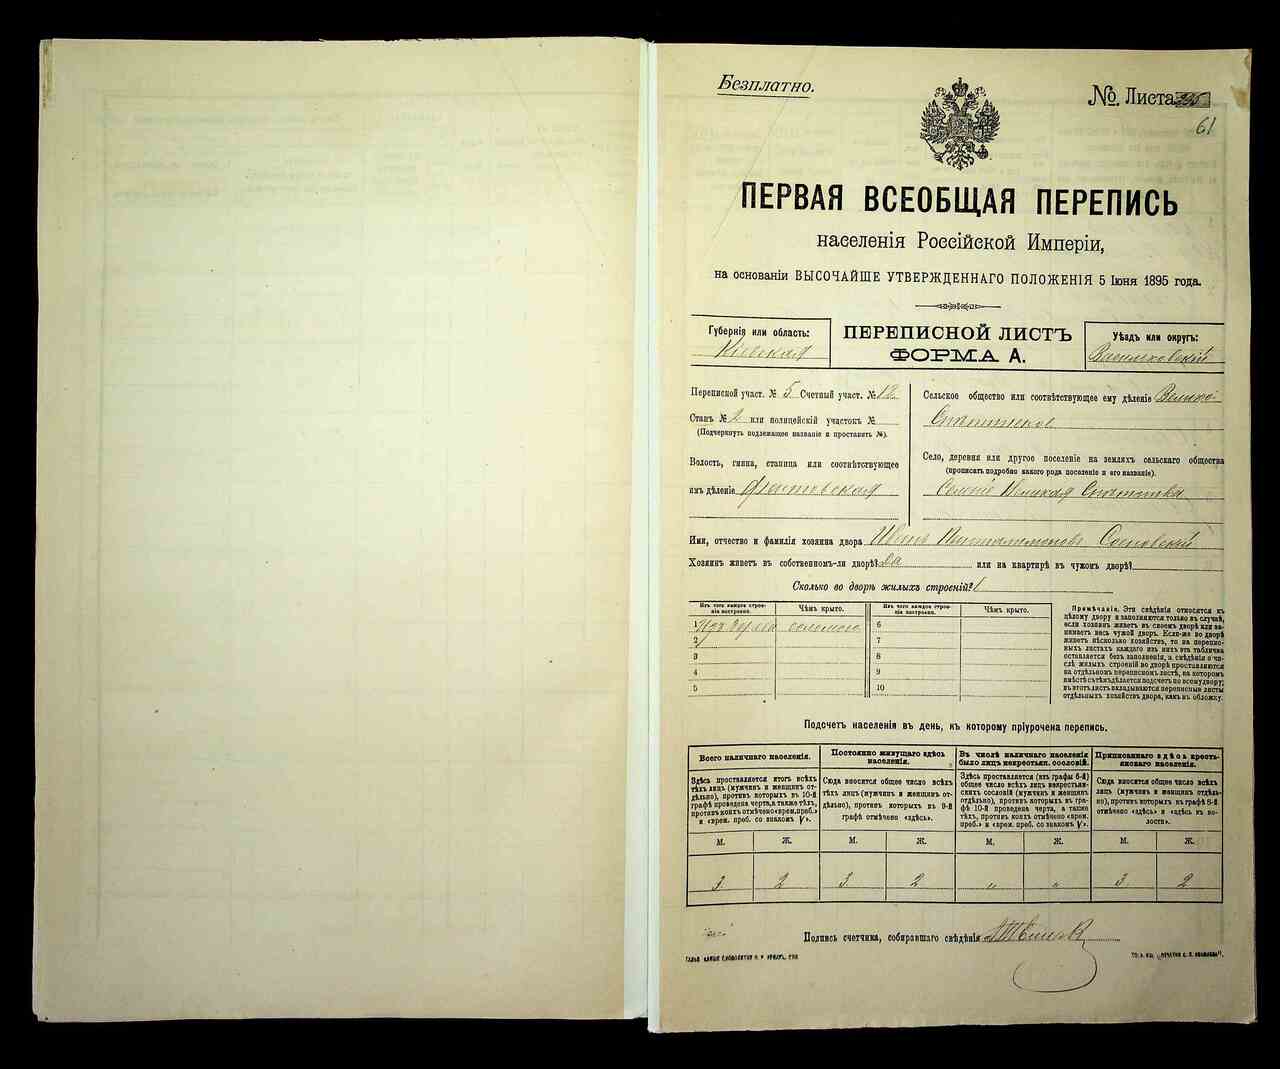 Безплатно.
№. Листа
61
ПЕРВАЯ ВСЕОБЩАЯ ПЕРЕПИСЬ
населенія Россійской Имперіи,
на основаніи ВЫСОЧАЙШЕ УТВЕРЖДЕННАГО ПОЛОЖЕНІЯ 5 Іюня 1895 года.
Губернія или область:
Кіевская
ПЕРЕПИСНОЙ ЛИСТЪ
ФОРМА А.
Уѣздъ или округъ:
Васильковскій
Переписной участ. № 5 Счетный участ. № 12
Станъ № 2 или полицейскій участокъ №
(Подчеркнуть подлежащее названіе и проставить №).
Волость, гмина, станица или соотвѣтствующее
имъ дѣленіе
Сельское общество или соотвѣтствующее ему дѣленіе Велико
Село, деревня или другое поселеніе на земляхъ сельскаго общества
(прописать подробно какого рода поселеніе и его названіе).
Селеніе Великая
Имя, отчество и фамилія хозяина двора Иванъ Сосновскій
Хозяинъ живетъ въ собственномъ-ли дворѣ? да или на квартирѣ въ чужомъ дворѣ?
Сколько во дворѣ жилыхъ строеній? 1
Изъ чего каждое строе-
ніе построено.
Чѣмъ крыто.
1 Изъ дерева соломою
2
3
4
5
Изъ чего каждое строе-
ніе построено.
Чѣмъ крыто.
6
7
8
9
10
Примѣчаніе. Эти свѣдѣнія относятся къ
цѣлому двору и заполняются только въ случаѣ,
если хозяинъ живетъ въ своемъ дворѣ или за-
нимаетъ весь чужой дворъ. Если-же во дворѣ
живетъ нѣсколько хозяйствъ, то на перепис-
ныхъ листахъ каждаго изъ нихъ эта табличка
оставляется безъ заполненія, а свѣдѣнія о чи-
слѣ жилыхъ строеній во дворѣ проставляются
на отдѣльномъ переписномъ листѣ, на которомъ
вмѣстѣ съ тѣмъ дѣлается подсчетъ по всему двору;
въ этотъ листъ вкладываются переписные листы
отдѣльныхъ хозяйствъ двора, какъ въ обложку.
Подсчетъ населенія въ день, къ которому пріурочена перепись.
Всего наличнаго населенія.
Здѣсь проставляется итогъ всѣхъ
тѣхъ лицъ (мужчинъ и женщинъ от-
дѣльно), противъ которыхъ въ 10-й
графѣ проведена черта, а также тѣхъ,
противъ коихъ отмѣчено «врем. преб.»
и «врем. преб. со знакомъ V».
М. Ж.
3 2
Постоянно живущаго здѣсь
населенія.
Сюда вносится общее число всѣхъ
тѣхъ лицъ (мужчинъ и женщинъ от-
дѣльно), противъ которыхъ въ 9-й
графѣ отмѣчено «здѣсь».
М. Ж.
3 2
Въ числѣ наличнаго населенія
было лицъ некрестьян. сословій.
Здѣсь проставляется (изъ графы 6-й)
общее число всѣхъ лицъ некрестьян-
скихъ сословій (мужчинъ и женщинъ
отдѣльно), противъ которыхъ въ гра-
фѣ 10-й проведена черта, а также
тѣхъ, противъ коихъ отмѣчено «врем.
преб.» и «врем. преб. со знакомъ V».
М. Ж.
„ „
Приписаннаго здѣсь кресть-
янскаго населенія.
Сюда вносится общее число всѣхъ
лицъ (мужчинъ и женщинъ отдѣль-
но), противъ которыхъ въ графѣ 8-й
отмѣчено «здѣсь» и «здѣсь въ во-
лости».
М. Ж.
3 2
Подпись счетчика, собиравшаго свѣдѣнія